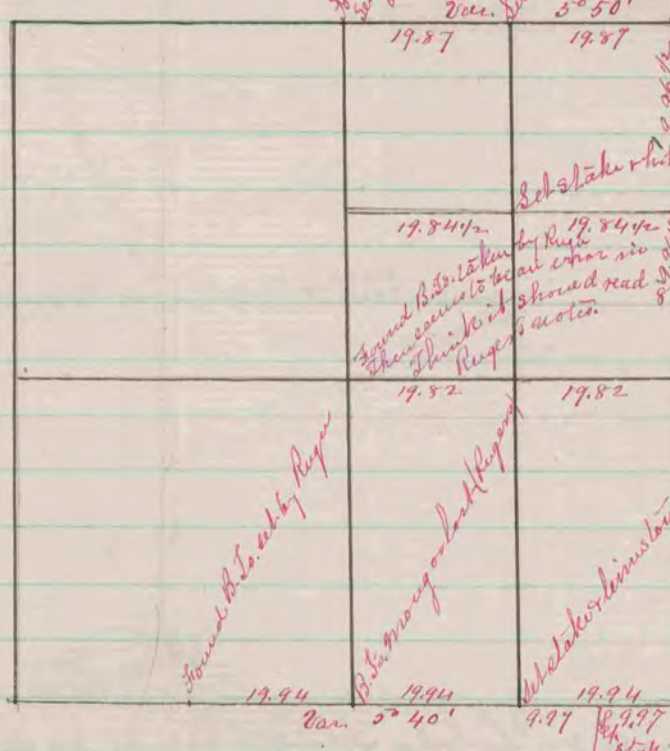 Var. 5° 50'
19.87 19.87
Set stake &
19.84½ 19.84½
Found B.Ts. taken by Ruger
There seems to be an error in
Think it should read
Ruger's notes.
19.82 19.82
Found B.Ts. set by Ruger
B.Ts. wrong or lost (Rugers)
Set stake & limestone
19.94 19.94 19.94
Var. 5° 40' 9.97 9.97